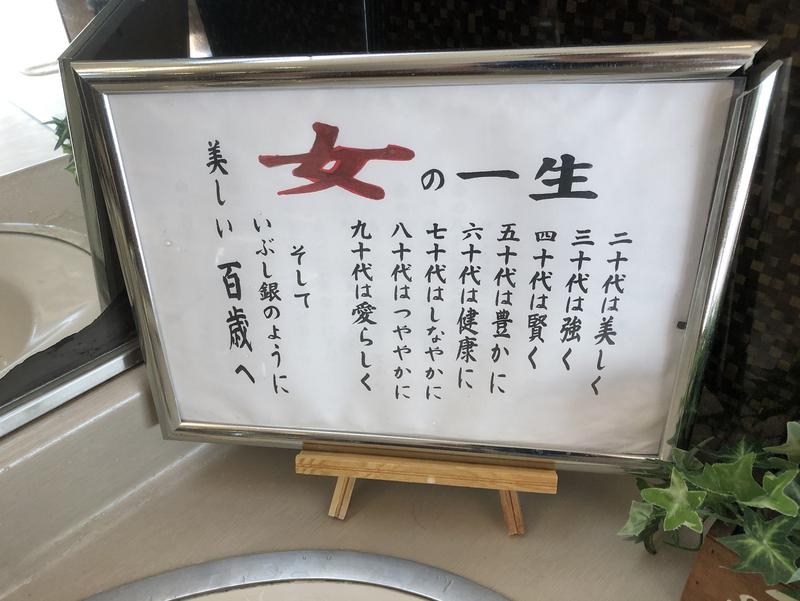 女の一生
二十代は美しく
三十代は強く
四十代は賢く
五十代は豊かに
六十代は健康に
七十代はしなやかに
八十代はつややかに
九十代は愛らしく
そして
いぶし銀のように
美しい百歳へ